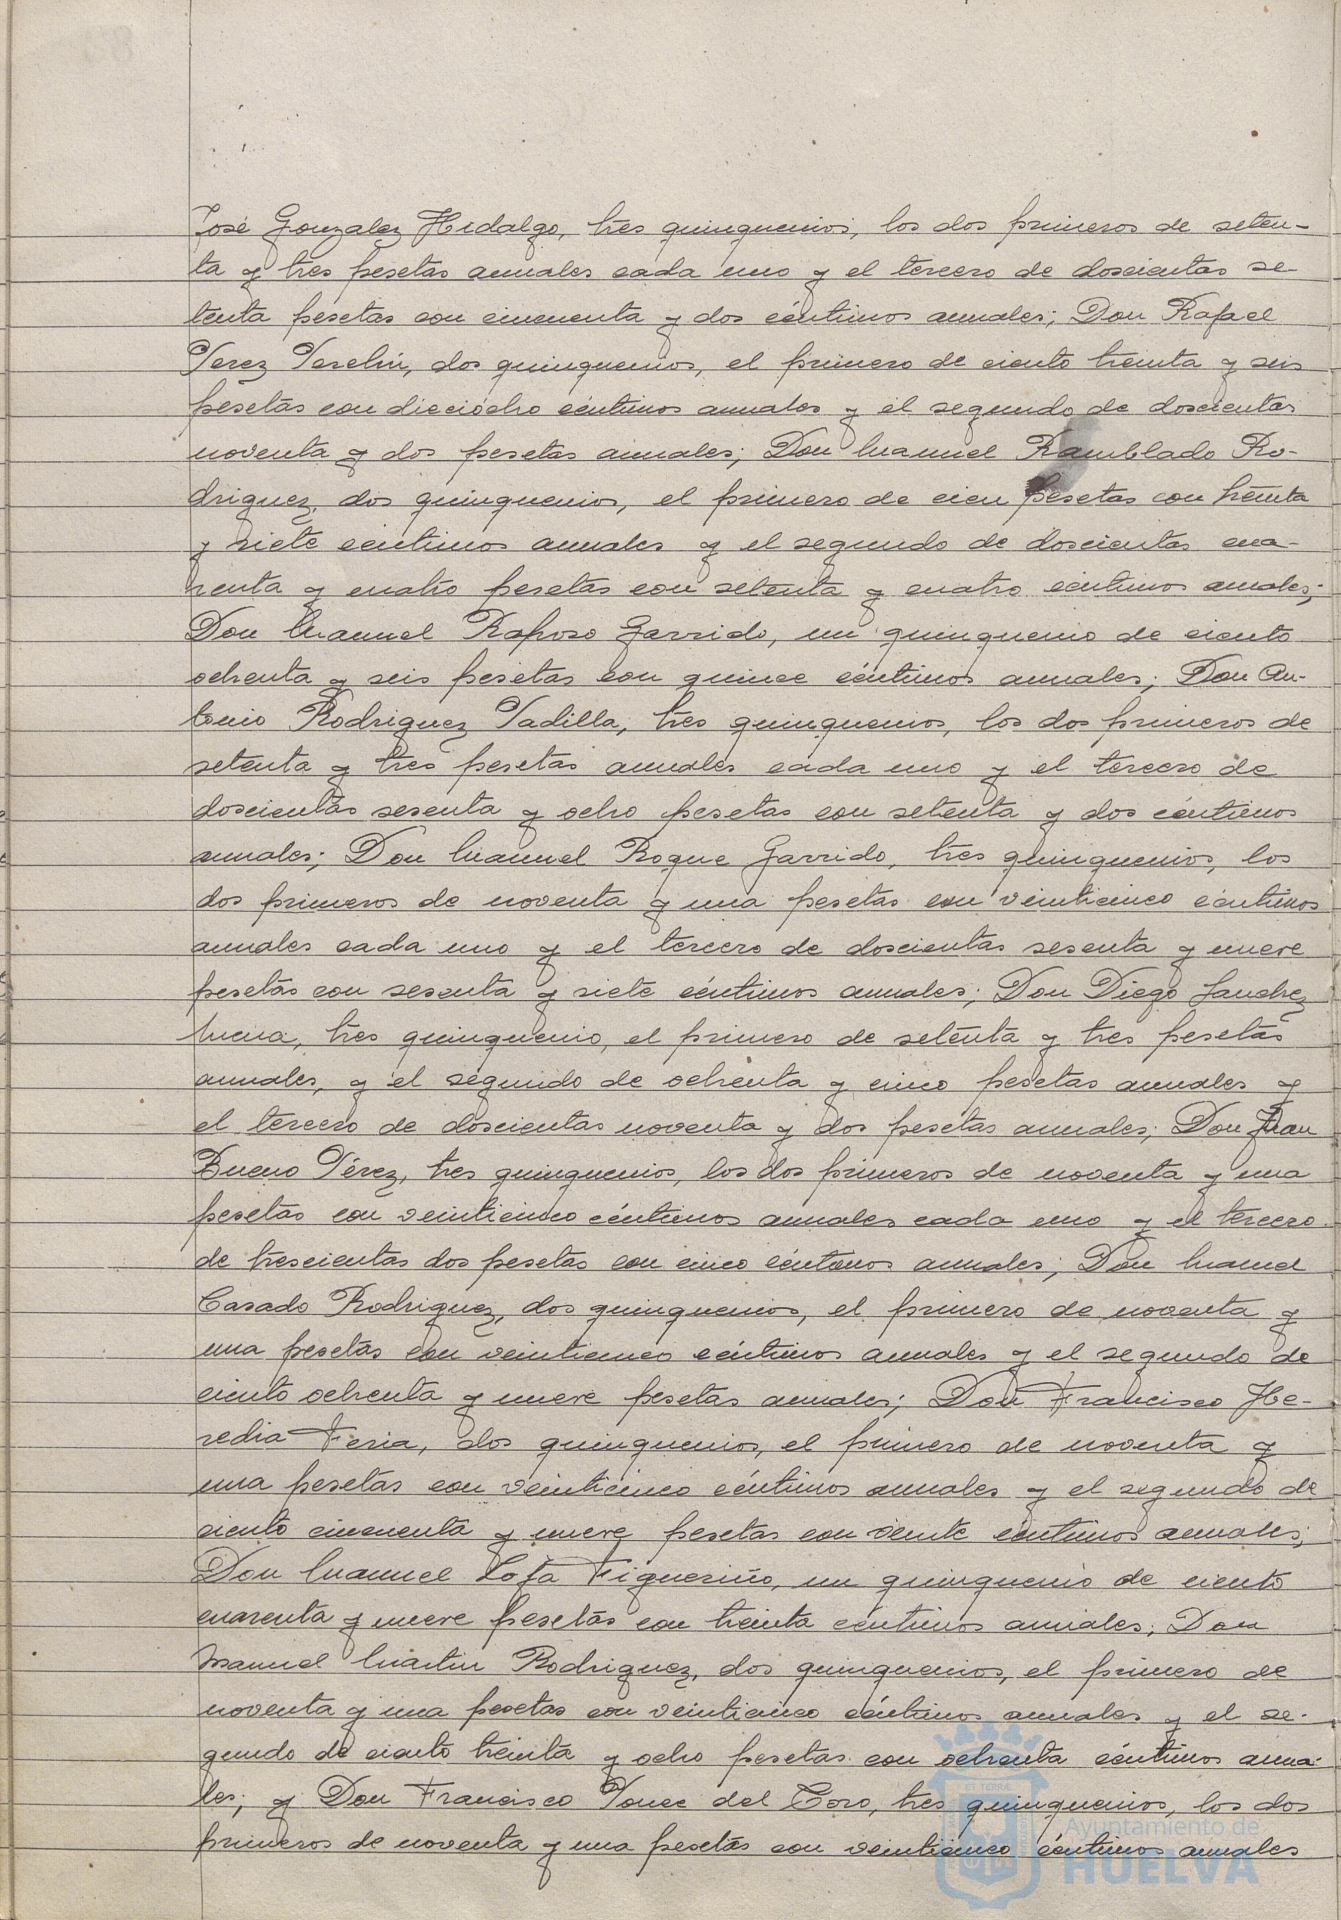 José Gonzalez Hidalgo, tres quinquenios, los dos primeros de seten-
ta y tres pesetas anuales cada uno y el tercero de doscientas se-
tenta pesetas con cincuenta y dos céntimos anuales; Don Rafael
Perez Perelín, dos quinquenios, el primero de ciento treinta y seis
pesetas con dieciocho céntimos anuales y el segundo de doscientas
noventa y dos pesetas anuales; Don Manuel Ramblado Ro-
driguez, dos quinquenios, el primero de cien pesetas con treinta
y siete céntimos anuales y el segundo de doscientas cua-
renta y cuatro pesetas con setenta y cuatro céntimos anuales;
Don Manuel Raposo Garrido, un quinquenio de ciento
ochenta y seis pesetas con quince céntimos anuales; Don An-
tonio Rodriguez Padilla, tres quinquenios, los dos primeros de
setenta y tres pesetas anuales cada uno y el tercero de
doscientas sesenta y ocho pesetas con setenta y dos céntimos
anuales; Don Manuel Roque Garrido, tres quinquenios, los
dos primeros de noventa y una pesetas con veinticinco céntimos
anuales cada uno y el tercero de doscientas sesenta y nueve
pesetas con sesenta y siete céntimos anuales; Don Diego Sanchez
Mena, tres quinquenio, el primero de setenta y tres pesetas
anuales, y el segundo de ochenta y cinco pesetas anuales y
el tercero de doscientas noventa y dos pesetas anuales; Don Juan
Bueno Pérez, tres quinquenios, los dos primeros de noventa y una
pesetas con veinticinco céntimos anuales cada uno y el tercero
de trescientas dos pesetas con cinco céntimos anuales; Don Manuel
Casado Rodriguez, dos quinquenios, el primero de noventa y
una pesetas con veinticinco céntimos anuales y el segundo de
ciento ochenta y nueve pesetas anuales; Don Francisco He-
redia Feria, dos quinquenios, el primero de noventa y
una pesetas con veinticinco céntimos anuales y el segundo de
ciento cincuenta y nueve pesetas con veinte céntimos anuales;
Don Manuel Lofa Figueriño, un quinquenio de ciento
cuarenta y nueve pesetas con treinta céntimos anuales; Don
Manuel Martin Rodriguez, dos quinquenios, el primero de
noventa y una pesetas con veinticinco céntimos anuales y el se-
gundo de ciento treinta y ocho pesetas con ochenta céntimos anua-
les; y Don Francisco Ponce del Toro, tres quinquenios, los dos
primeros de noventa y una pesetas con veinticinco céntimos anuales
Ayuntamiento de
HUELVA